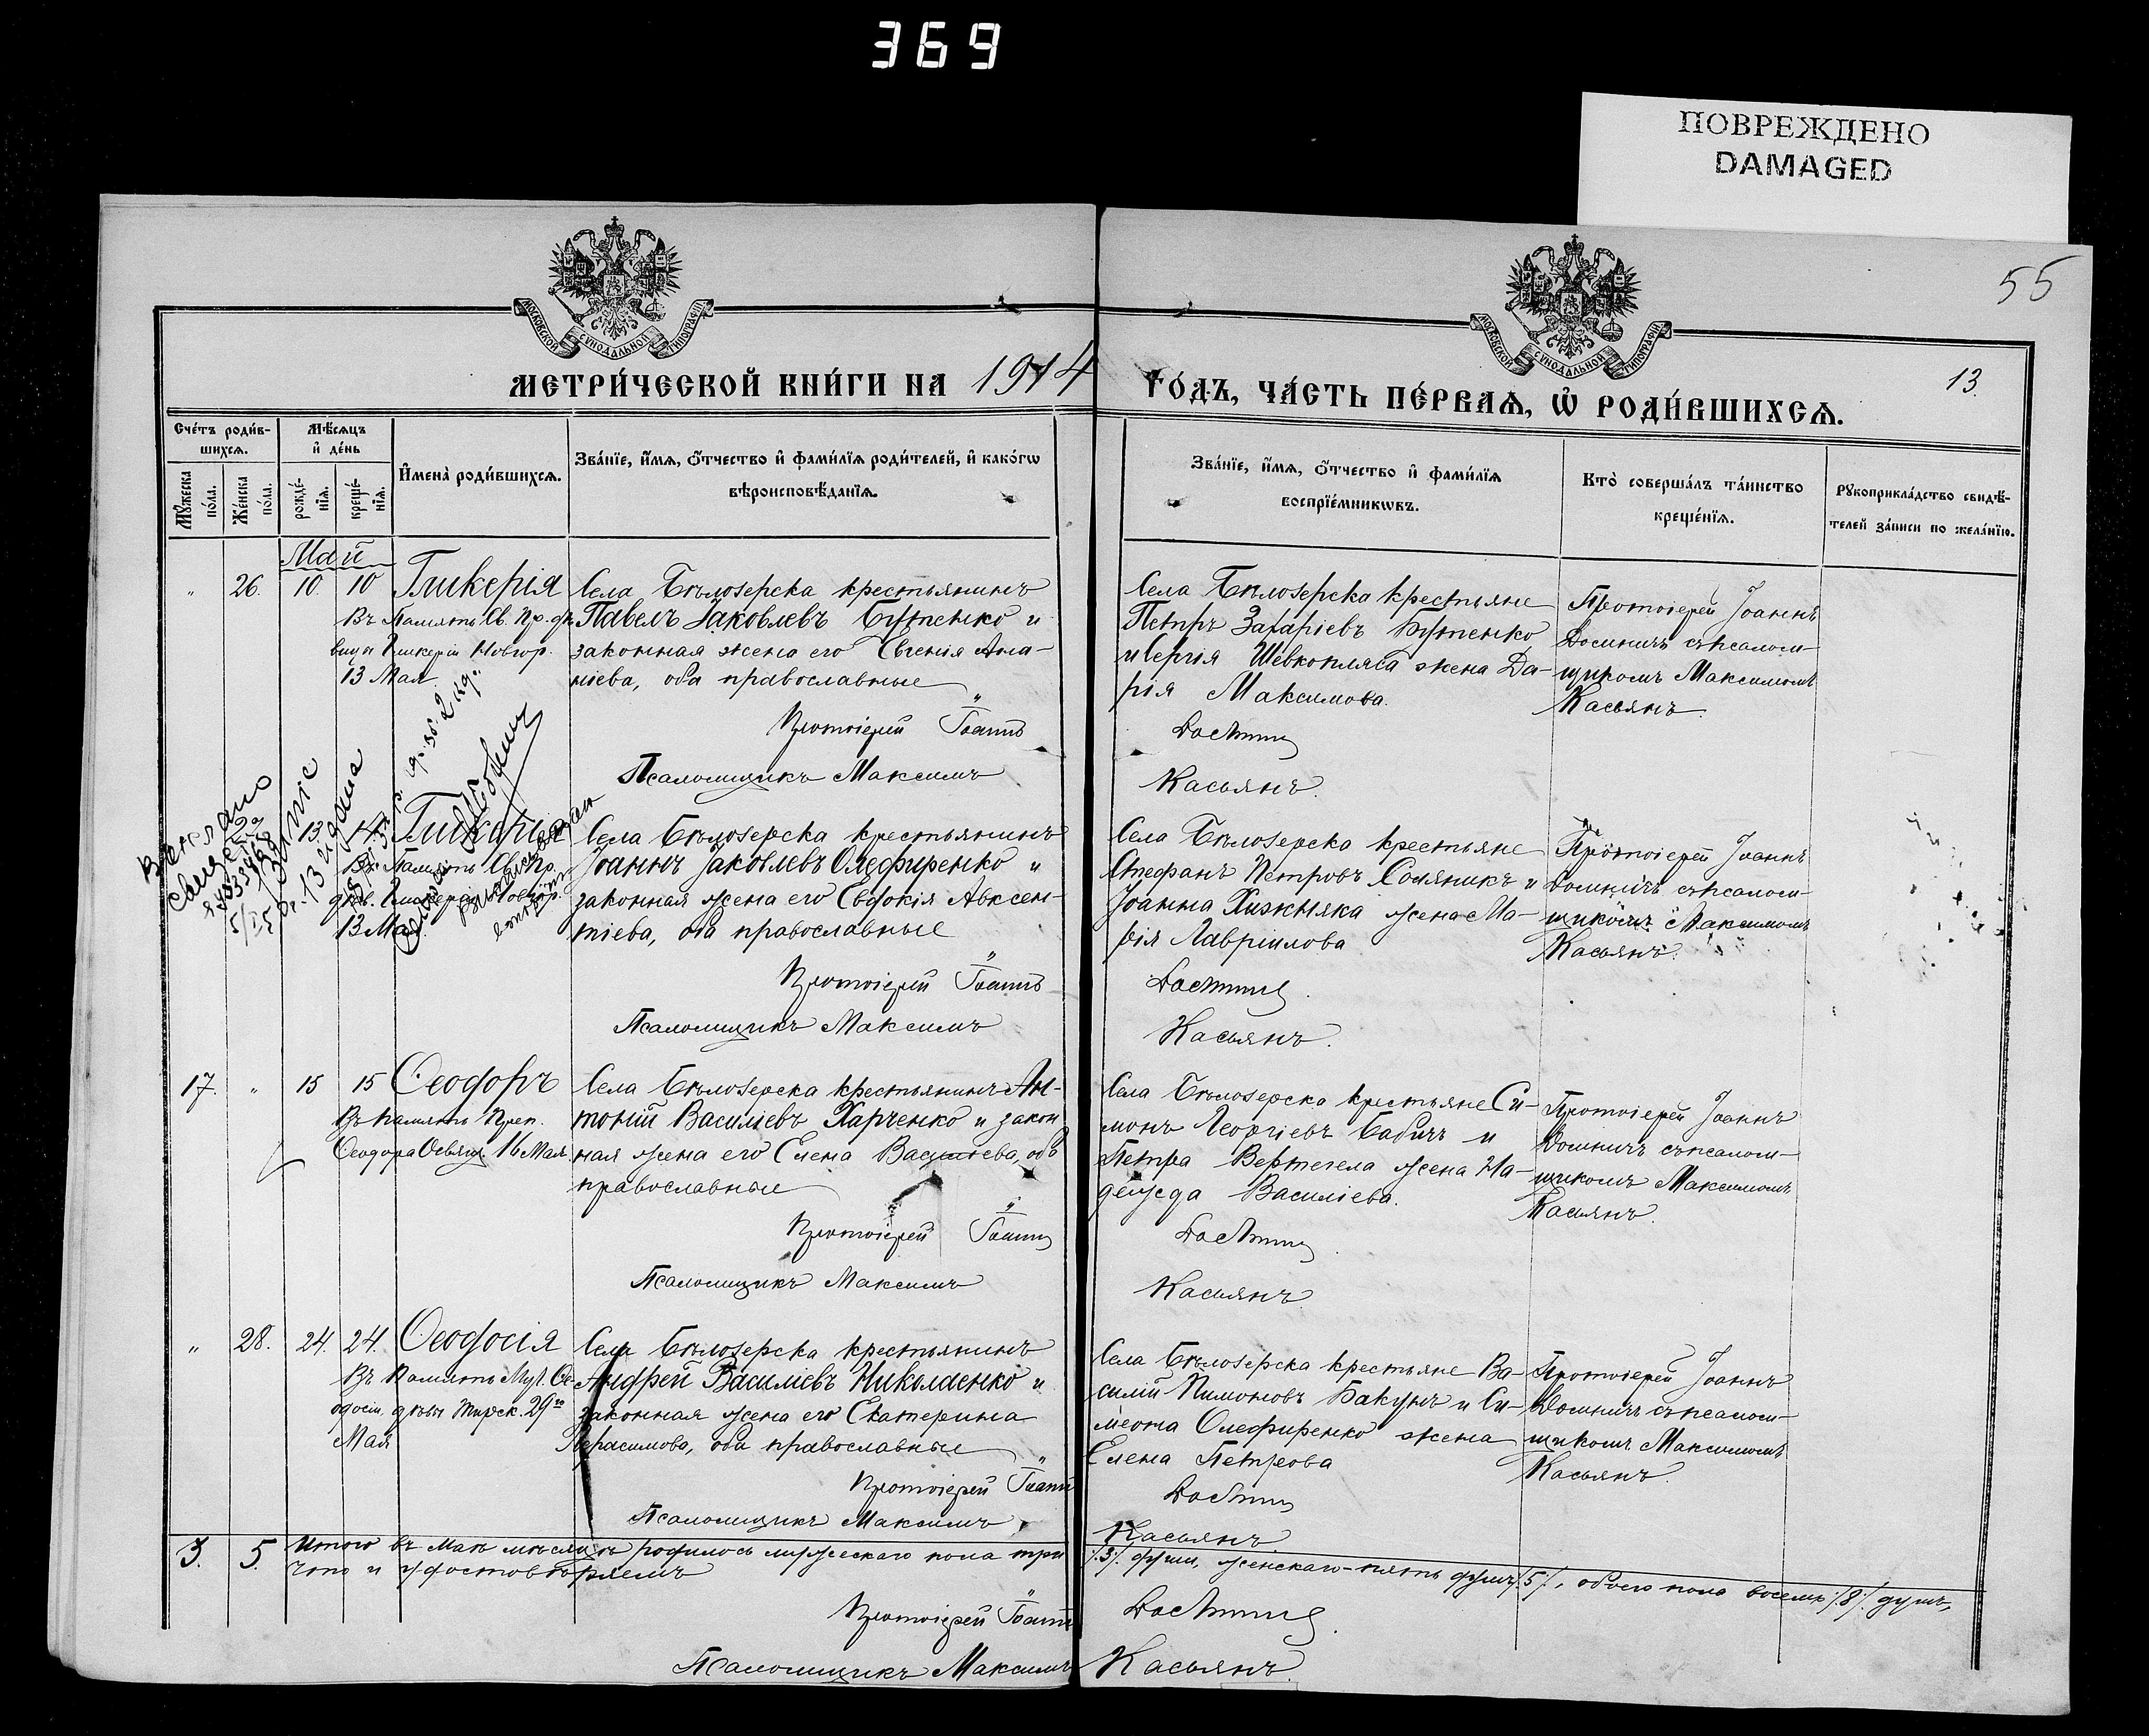 369
ПОВРЕЖДЕНО
DAMAGED
55
МОСКОВСКОЙ СУНОДАЛЬНОЙ ТИПОГРАФІИ
МОСКОВСКОЙ СУНОДАЛЬНОЙ ТИПОГРАФІИ
МЕТРИ́ЧЕСКОЙ КНИ́ГИ НА 1914 ГО́ДЪ, ЧА́СТЬ ПЕ́РВАЯ, Ѡ҆ РОДИ́ВШИХСЯ.
13.
Сче́тъ роди́вшихся.
Му́жеска по́ла.
Же́нска по́ла.
Мѣ́сяцъ и҆ де́нь
рожде́нїя.
креще́нїя.
И҆мена̀ роди́вшихся.
Зва́нїе, и҆́мя, ѻ҆́тчество и҆ фами́лїя роди́телей, и҆ како́гѡ
вѣроисповѣ́данїя.
Зва́нїе, и҆́мя, ѻ҆́тчество и҆ фами́лїя
воспрїе́мникѡвъ.
Кто̀ соверша́лъ та́инство
креще́нїя.
Рукоприкла́дство свидѣ́-
телей за́писи по жела́нїю.
Май
" 26. 10. 10 Гликерія
Въ память Св. Пр. дѣ-
вицы Гликеріи Новгор.
13 Мая.
Села Бѣлозерска крестьянинъ
Павелъ Іаковлевъ Бутенко и
законная жена его Евгенія Ана-
ніева, оба православные
Протоіерей Іоаннъ
Псаломщикъ Максимъ
Села Бѣлозерска крестьяне
Петръ Захаріевъ Бутенко
и Сергія Шевкопляса жена Да-
рія Максимова.
Касьянъ.
Протоіерей Іоаннъ
съ псалом-
щикомъ Максимомъ
Касьянъ.
13. 14. Гликерія
Въ память Св. Пр.
дѣв. Гликеріи Новгор.
13 Мая.
Села Бѣлозерска крестьянинъ
Іоаннъ Іаковлевъ Олефиренко и
законная жена его Евдокія Авксен-
тіева, оба православные
Протоіерей Іоаннъ
Псаломщикъ Максимъ
Села Бѣлозерска крестьяне
Стефанъ Петровъ Соляникъ и
Іоанна Хижняка жена Ма-
рія Лавріилова
Касьянъ.
Протоіерей Іоаннъ
съ псалом-
щикомъ Максимомъ
Касьянъ.
17. " 15 15 Ѳеодоръ
Въ память Преп.
Ѳеодора Освящ. 16 Мая.
Села Бѣлозерска крестьянинъ Ан-
тоній Василіевъ Харченко и закон
ная жена его Елена Василіева, оба
православные
Протоіерей Іоаннъ
Псаломщикъ Максимъ
Села Бѣлозерска крестьяне Си-
монъ Георгіевъ Бабичъ и
Петра Вертегела жена На-
дежда Василіева.
Касьянъ.
Протоіерей Іоаннъ
съ псалом-
щикомъ Максимомъ
Касьянъ.
" 28. 24. 24. Ѳеодосія
Въ память Муч. Ѳе-
одосіи дѣвы Тирск. 29го
Мая
Села Бѣлозерска крестьянинъ
Андрей Василіевъ Николаенко и
законная жена его Екатерина
Герасимова, оба православные
Протоіерей Іоаннъ
Псаломщикъ Максимъ
Села Бѣлозерска крестьяне Ва-
силій Пимоновъ Бакунъ и Си-
меона Олефиренко жена
Елена Петрова
Касьянъ
Протоіерей Іоаннъ
съ псалом-
щикомъ Максимомъ
Касьянъ.
3. 5. Итого въ Маѣ мѣсяцѣ родилось мужескаго пола три /.3/. души, женскаго – пять душъ /.5/., обоего пола восемь /.8/. душъ,
что и удостовѣряемъ
Протоіерей Іоаннъ
Псаломщикъ Максимъ Касьянъ.